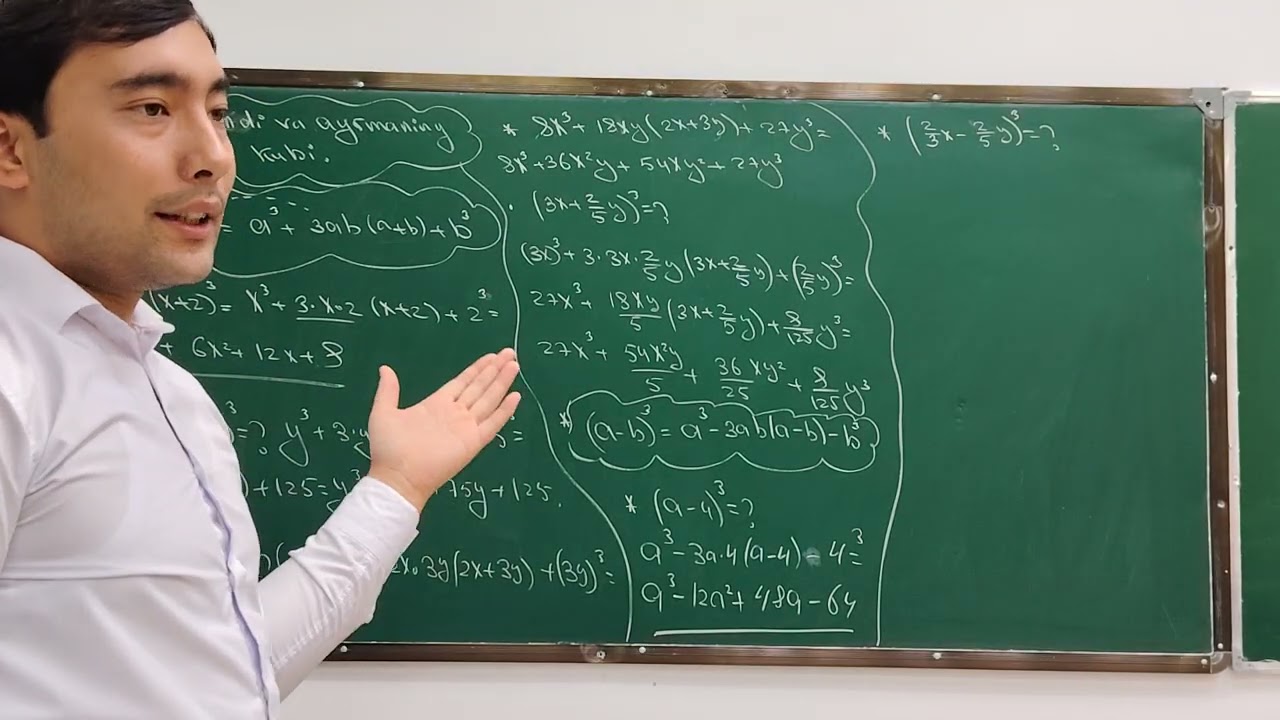 va ayırmaning
kubi.
= a³ + 3ab(a+b) + b³
(x+2)³ = x³ + 3·x·2 (x+2) + 2³ =
+ 6x² + 12x + 8
³ = ? y³ + 3·y ³ =
) + 125 = y³ 75y + 125.
2x·3y(2x+3y) + (3y)³ =
* 8x³ + 18xy(2x+3y) + 27y³ =
8x³ + 36x²y + 54xy² + 27y³
· (3x + 2/5 y)³ = ?
(3x)³ + 3·3x·2/5 y (3x + 2/5 y) + (2/5 y)³ =
27x³ + 18xy/5 (3x + 2/5 y) + 8/125 y³ =
27x³ + 54x²y/5 + 36/25 xy² + 8/125 y³
* (a-b)³ = a³ - 3ab(a-b) - b³
* (a-4)³ = ?
a³ - 3a·4(a-4) - 4³ =
a³ - 12a² + 48a - 64
* (2/3 x - 2/5 y)³ = ?